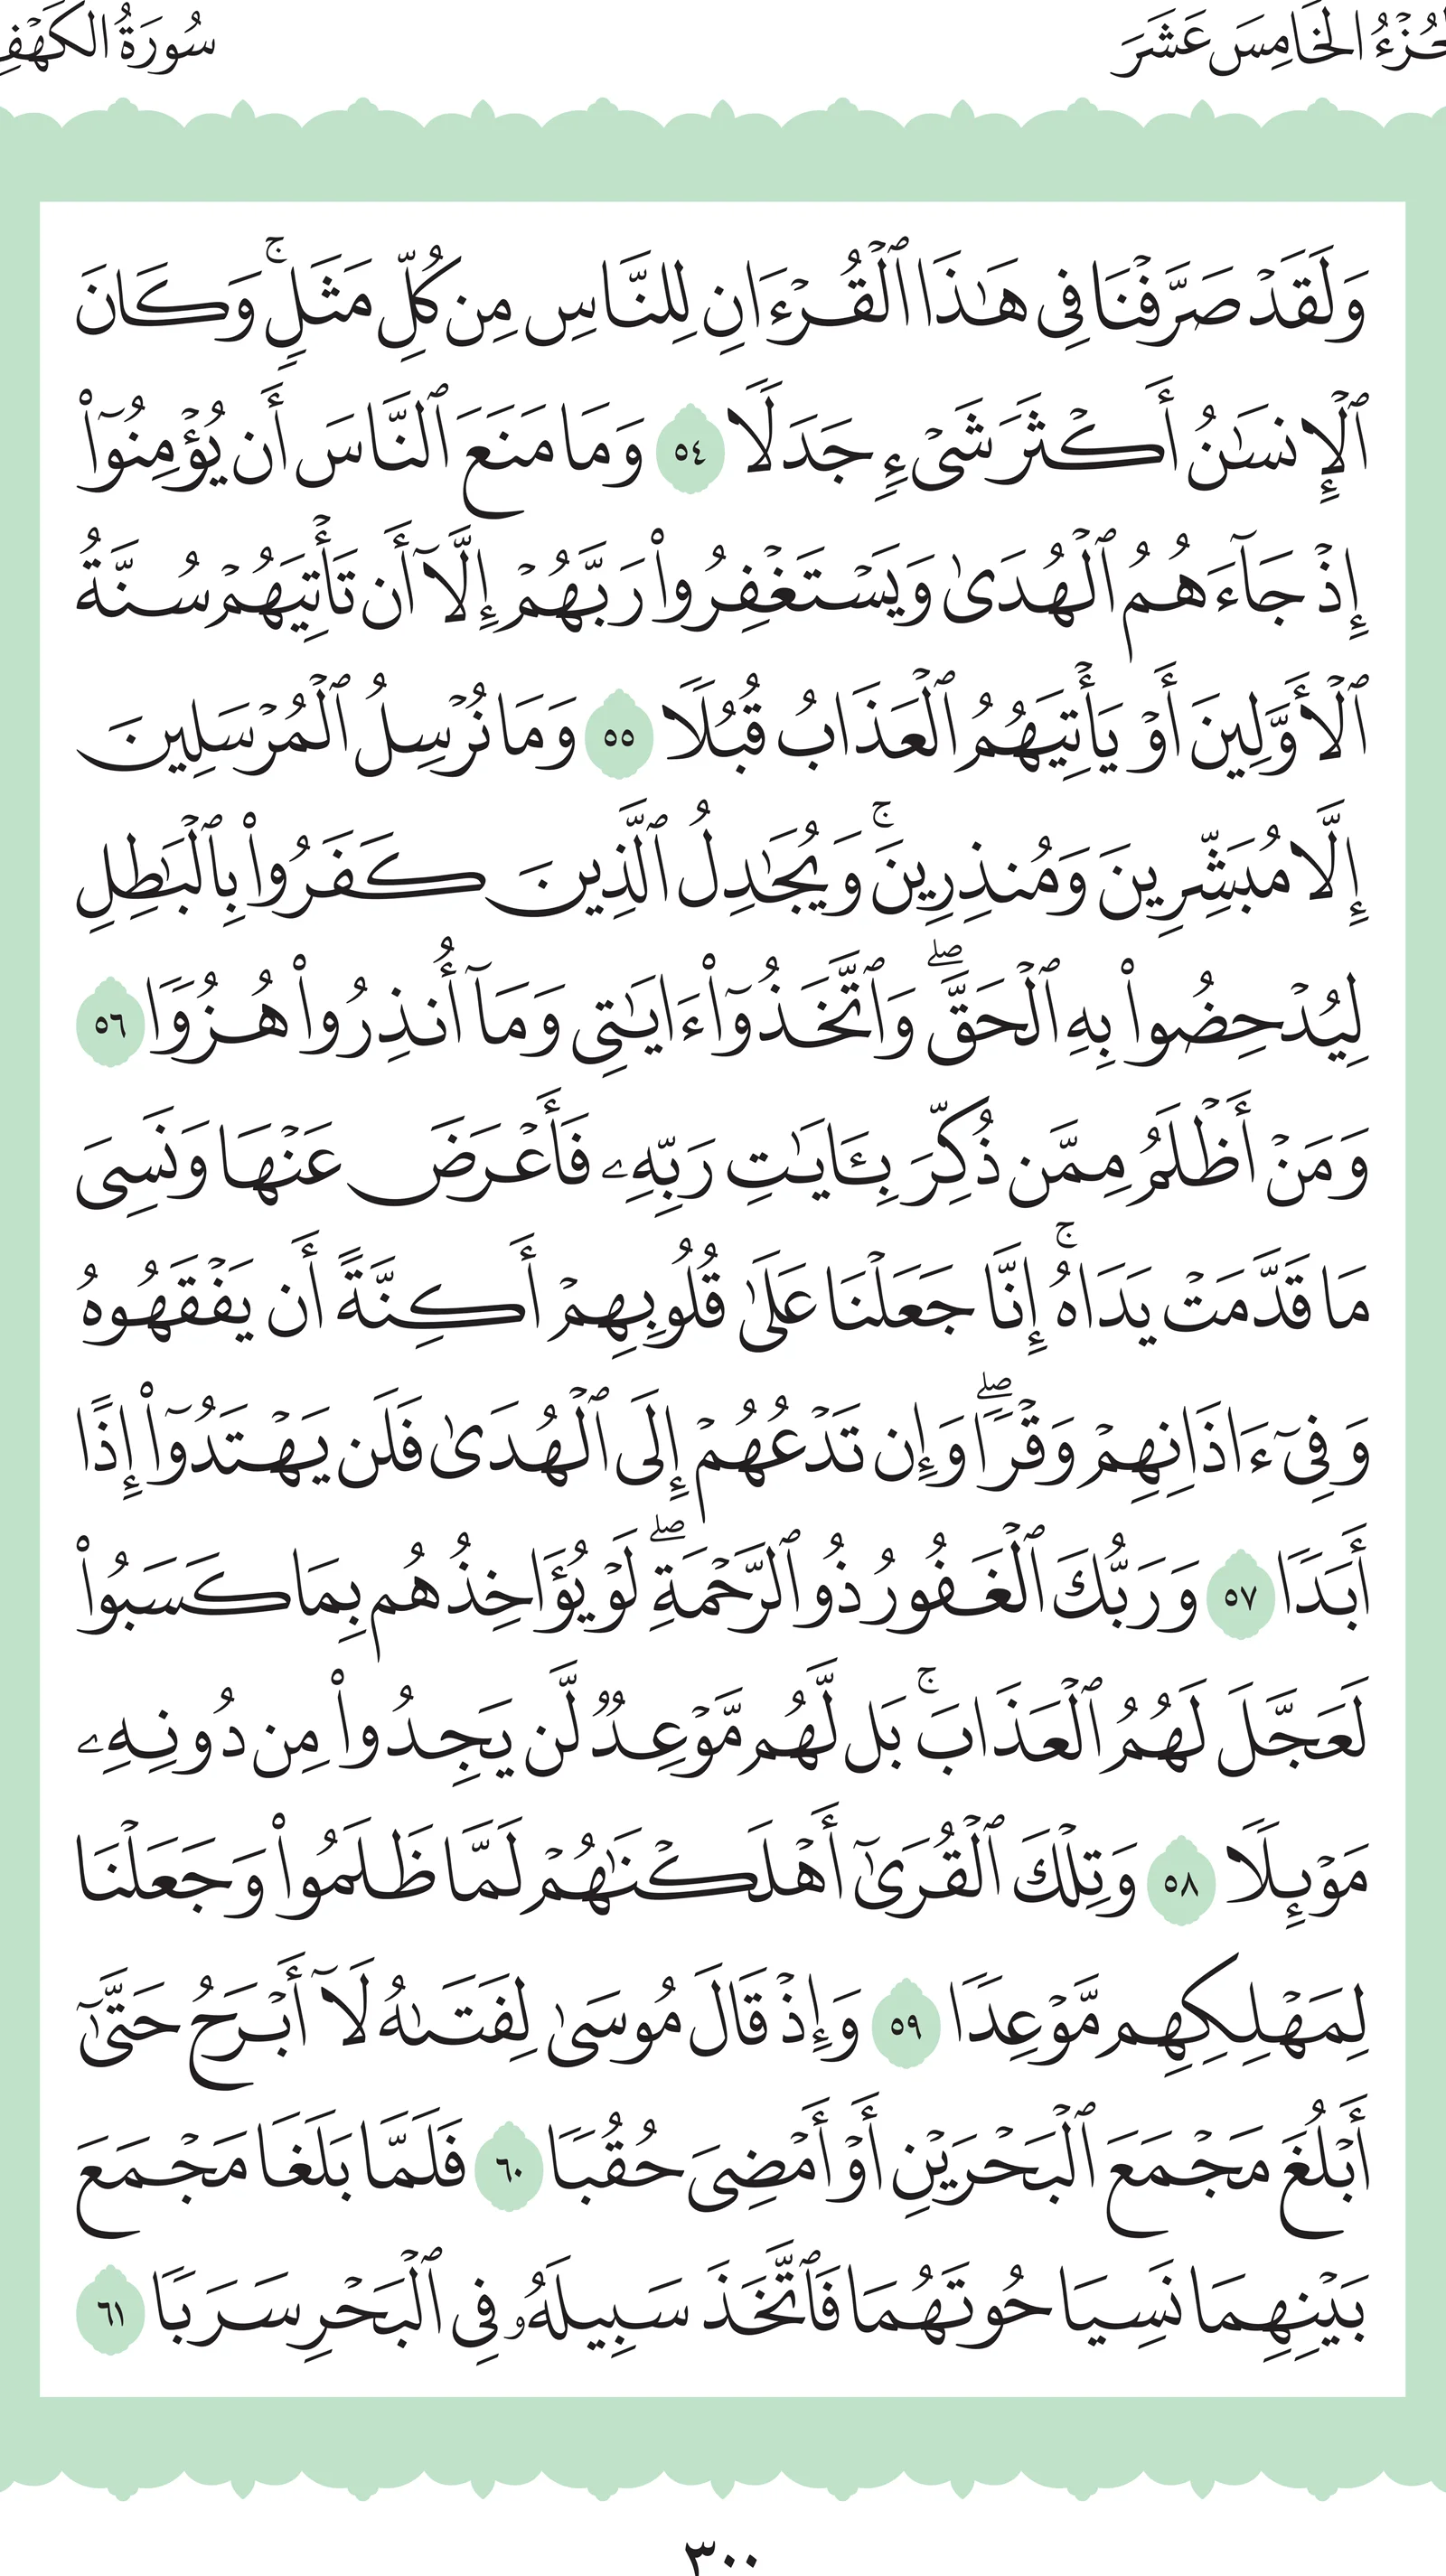 الجُزْءُ الخَامِسَ عَشَرَ سُورَةُ الكَهْفِ
وَلَقَدْ صَرَّفْنَا فِى هَٰذَا ٱلْقُرْءَانِ لِلنَّاسِ مِن كُلِّ مَثَلٍ ۚ وَكَانَ
ٱلْإِنسَٰنُ أَكْثَرَ شَىْءٍ جَدَلًا ٥٤ وَمَا مَنَعَ ٱلنَّاسَ أَن يُؤْمِنُوٓا۟
إِذْ جَآءَهُمُ ٱلْهُدَىٰ وَيَسْتَغْفِرُوا۟ رَبَّهُمْ إِلَّآ أَن تَأْتِيَهُمْ سُنَّةُ
ٱلْأَوَّلِينَ أَوْ يَأْتِيَهُمُ ٱلْعَذَابُ قُبُلًا ٥٥ وَمَا نُرْسِلُ ٱلْمُرْسَلِينَ
إِلَّا مُبَشِّرِينَ وَمُنذِرِينَ ۚ وَيُجَٰدِلُ ٱلَّذِينَ كَفَرُوا۟ بِٱلْبَٰطِلِ
لِيُدْحِضُوا۟ بِهِ ٱلْحَقَّ ۖ وَٱتَّخَذُوٓا۟ ءَايَٰتِى وَمَآ أُنذِرُوا۟ هُزُوًا ٥٦
وَمَنْ أَظْلَمُ مِمَّن ذُكِّرَ بِـَٔايَٰتِ رَبِّهِۦ فَأَعْرَضَ عَنْهَا وَنَسِىَ
مَا قَدَّمَتْ يَدَاهُ ۚ إِنَّا جَعَلْنَا عَلَىٰ قُلُوبِهِمْ أَكِنَّةً أَن يَفْقَهُوهُ
وَفِىٓ ءَاذَانِهِمْ وَقْرًا ۖ وَإِن تَدْعُهُمْ إِلَى ٱلْهُدَىٰ فَلَن يَهْتَدُوٓا۟ إِذًا
أَبَدًا ٥٧ وَرَبُّكَ ٱلْغَفُورُ ذُو ٱلرَّحْمَةِ ۖ لَوْ يُؤَاخِذُهُم بِمَا كَسَبُوا۟
لَعَجَّلَ لَهُمُ ٱلْعَذَابَ ۚ بَل لَّهُم مَّوْعِدٌ لَّن يَجِدُوا۟ مِن دُونِهِۦ
مَوْئِلًا ٥٨ وَتِلْكَ ٱلْقُرَىٰٓ أَهْلَكْنَٰهُمْ لَمَّا ظَلَمُوا۟ وَجَعَلْنَا
لِمَهْلِكِهِم مَّوْعِدًا ٥٩ وَإِذْ قَالَ مُوسَىٰ لِفَتَىٰهُ لَآ أَبْرَحُ حَتَّىٰٓ
أَبْلُغَ مَجْمَعَ ٱلْبَحْرَيْنِ أَوْ أَمْضِىَ حُقُبًا ٦٠ فَلَمَّا بَلَغَا مَجْمَعَ
بَيْنِهِمَا نَسِيَا حُوتَهُمَا فَٱتَّخَذَ سَبِيلَهُۥ فِى ٱلْبَحْرِ سَرَبًا ٦١
٣٠٠